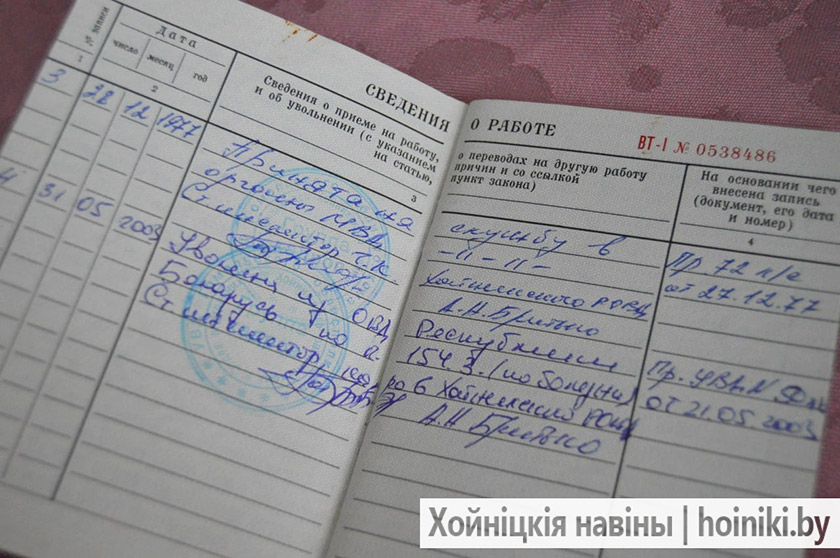 СВЕДЕНИЯ О РАБОТЕ
ВТ-I № 0538486
№ записи
Дата
число месяц год
Сведения о приеме на работу, о переводах на другую работу
и об увольнении (с указанием причин и со ссылкой
на статью, пункт закона)
На основании чего
внесена запись
(документ, его дата
и номер)
1 2 3 4
3 28 12 1977 Принята на службу в
органы МВД -11-11-
Ст. инспектор Хойникского РОВД
А.Н. Бритько
Пр. 72 л/с
от 27.12.77
4 31 05 2003 Уволена из ОВД Республики
Беларусь по п. 154.3. (по болезни)
Ст. инспектор Хойникского РОВД
А.Н. Бритько
Пр. УВД №
от 21.05.2003
Хойніцкія навіны | hoiniki.by